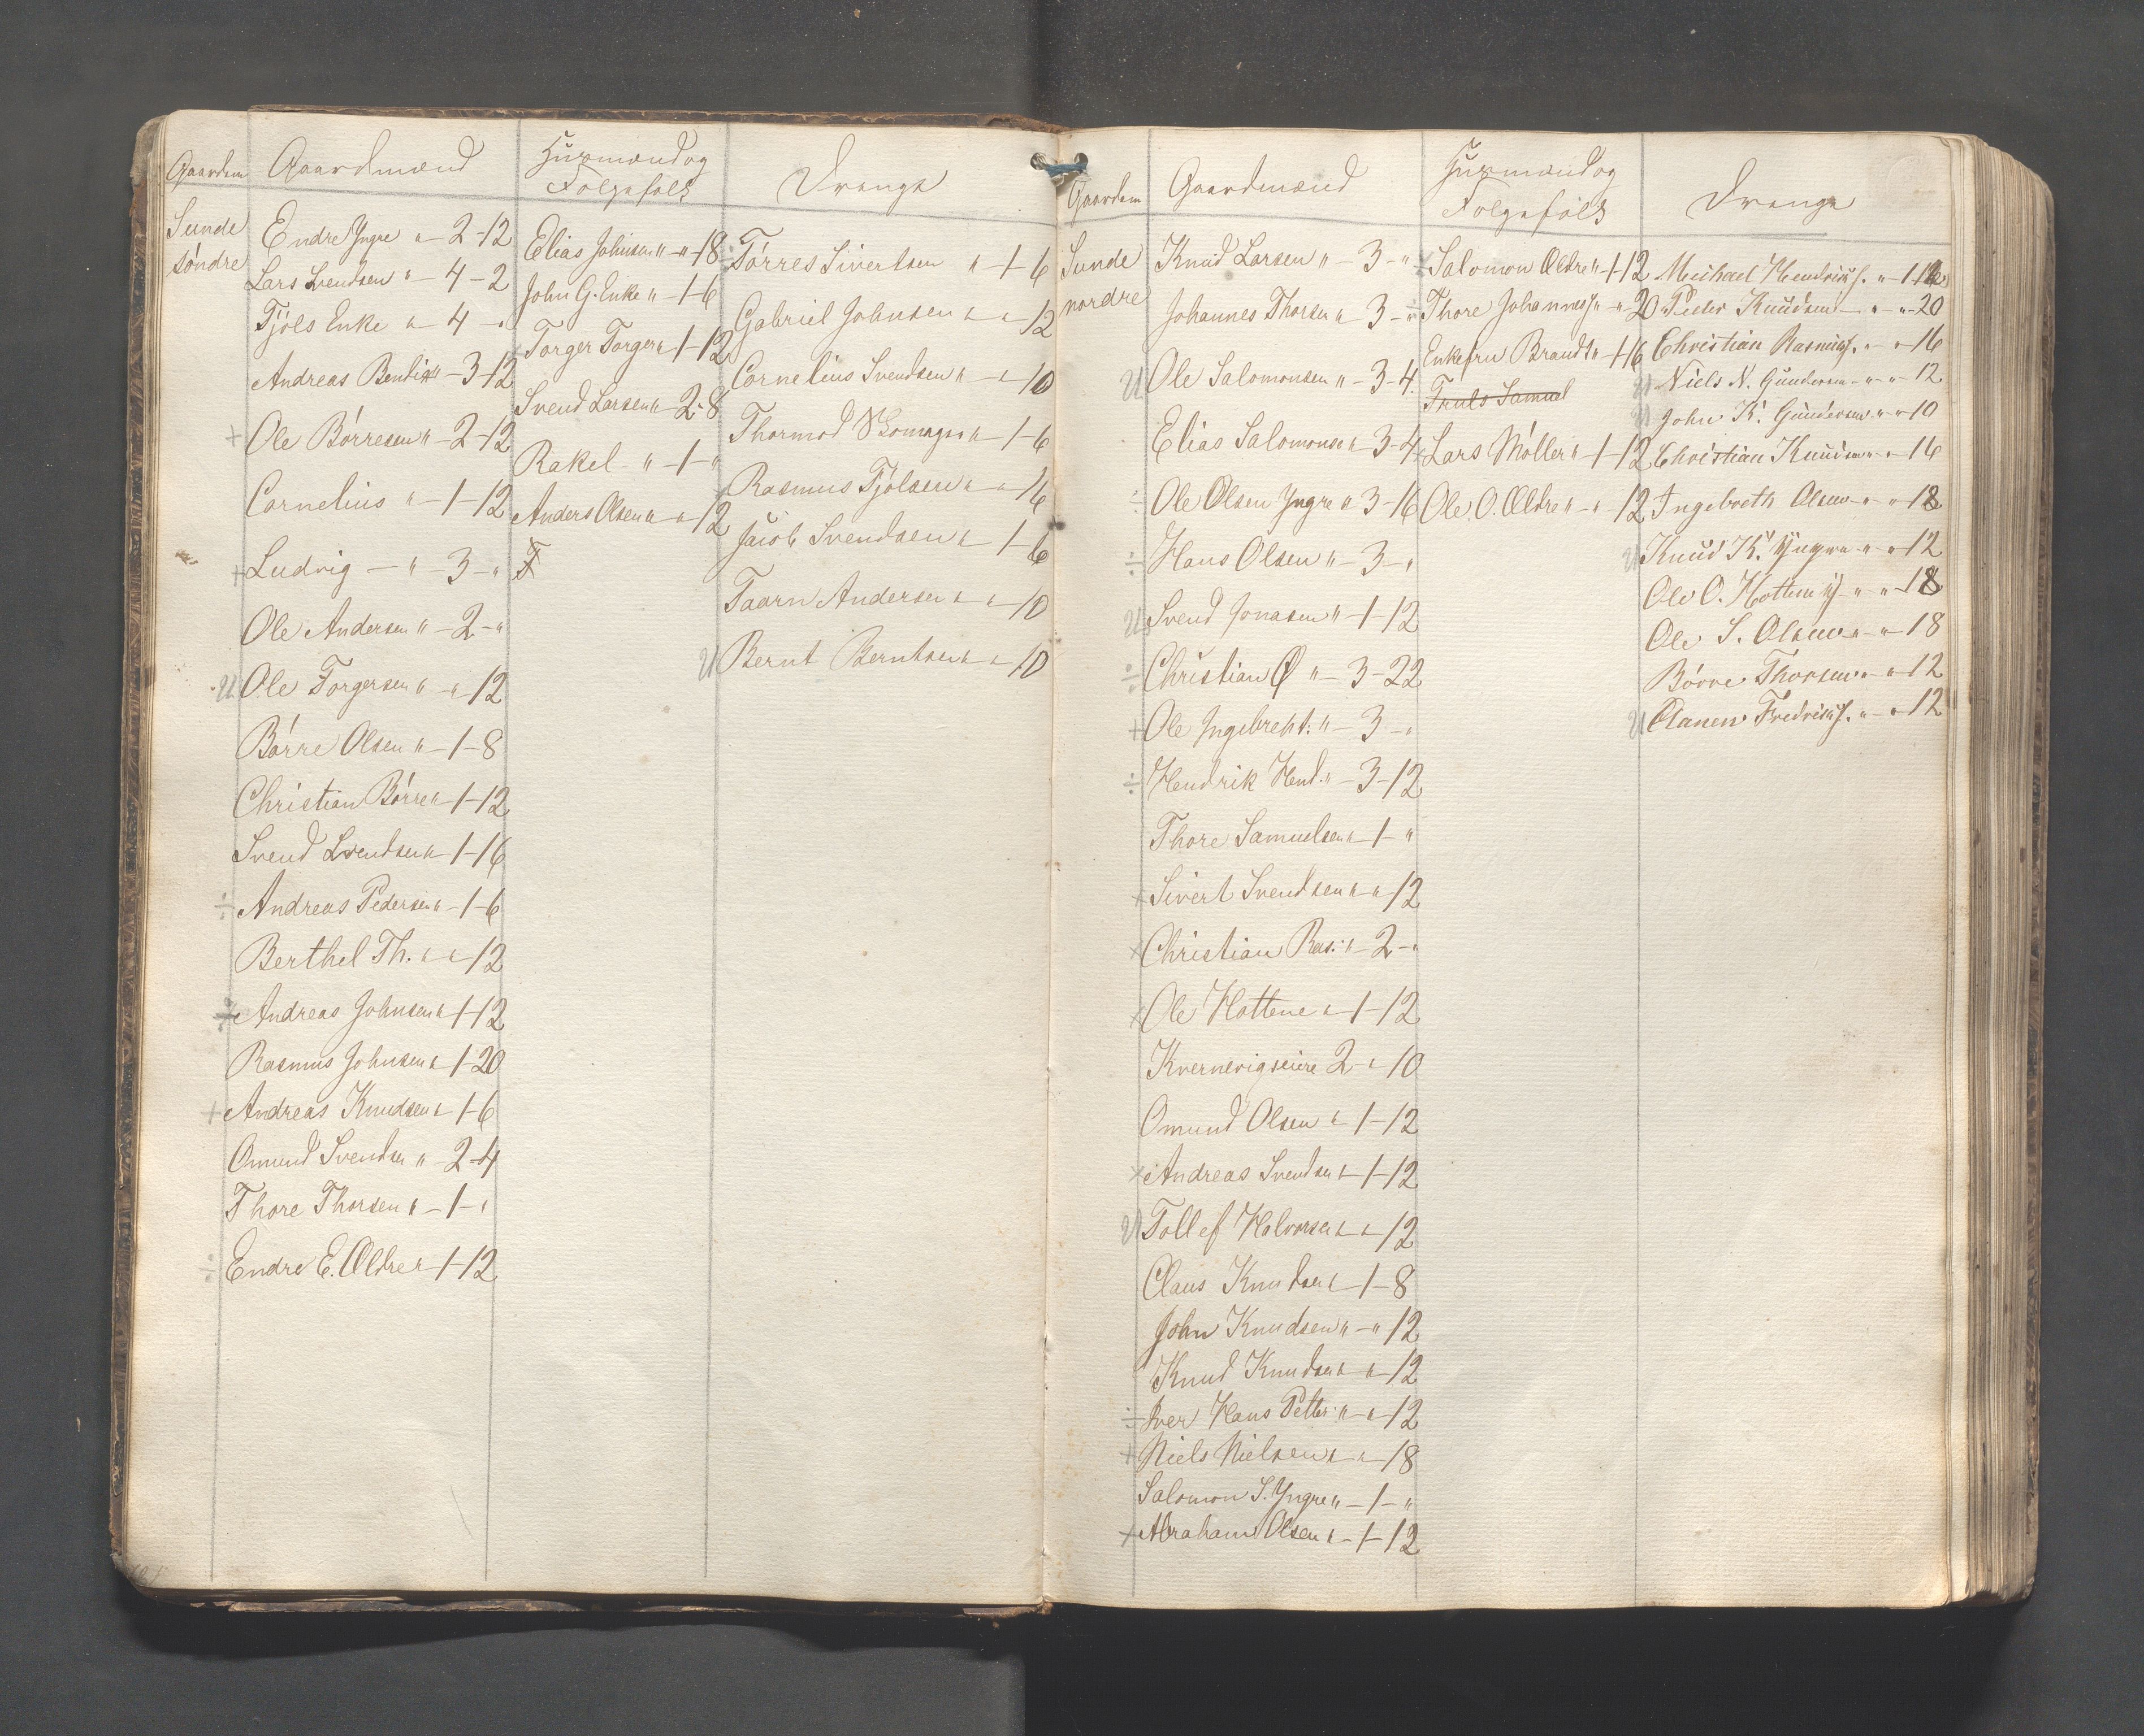 Gaardene
Gaardmænd
Husmænd og
Folgefolk
Drenge
Sunde
søndre
Endre Yngre " - 2 - 12
Lars Svendsen " - 4 - 2
Tjöls Enke " - 4 - "
Andreas Bentix " - 3 - 12
+ Ole Börresen " - 2 - 12
Cornelius " - 1 - 12
+ Ludvig - " - 3 - "
Ole Andersen " - 2 - "
U Ole Torgersen " - " - 12
Börre Olsen " - 1 - 8
Christian Börre " - 1 - 12
Svend Svendsen " - 1 - 16
÷ Andreas Pedersen " - 1 - 6
Berthel Th. " - " - 12
÷ Andreas Johnsen " - 1 - 12
Rasmus Johnsen " - 1 - 20
+ Andreas Knudsen " - 1 - 6
Omund Svendsen " - 2 - 4
Thore Thorsen " - 1 - "
÷ Endre E. Ældre " - 1 - 12
Elias Johnsen " - " - 18
John G. Enke " - 1 - 6
Torger Torger " - 1 - 12
Svend Larsen " - 2 - 8
Rakel - " - 1 - "
Anders Olsen " - " - 12
F
Törres Sivertsen " - 1 - 6
Gabriel Johnsen " - " - 12
Cornelius Svendsen " - " - 10
Thormod " - 1 - 6
Rasmus Tjölsen " - " - 16
Jacob Svendsen " - 1 - 6
Taarn Andersen " - " - 10
U Bernt Berntsen " - " - 10
Gaardene
Gaardmænd
Husmænd og
Folgefolk
Drenge
Sunde
nordre
Knud Larsen " - 3 - "
Johannes Thorsen " - 3 - "
U Ole Salomonsen " - 3 - 4
Elias Salomonsen " - 3 - 4
÷ Ole Olsen Yngre " 3 - 16
÷ Hans Olsen " - 3 - "
U Svend Jonasen " - 1 - 12
÷ Christian Ø " - 3 - 22
+ Ole Ingebreht: " - 3 - "
÷ Hendrik Hend. " - 3 - 12
Thore Samuelsen " - 1 - "
+ Sivert Svendsen " - " - 12
+ Christian Ras: " - 2 - "
+ Ole Hottene " - 1 - 12
Kvernevigseiere 2 - " 10
Omund Olsen " - 1 - 12
+ Andreas Svendsen " - 1 - 12
U Tollef Halvorsen " - " - 12
Claus Knudsen " - 1 - 8
John Knudsen " - " 12
Knud Knudsen " - " - 12
÷ Iver Hans Petter " - " - 12
+ Niels Nielsen " - " - 18
Salomon S. Yngre " - 1 - "
+ Abraham Olsen " - 1 - 12
÷ Salomon Ældre " - 1 - 12
÷ Thore Johannes " - " 20
Enkefru Brandt " - 1 - 16
Truls Samuel
Lars Möller " - 1 - 12
Ole. O. Ældre " - " - 12
Michael Hendriks. " - 1 - 12
Peder Knudsen - " - " - 20
Christian Rasmus. " - " 16
U Niels N. Gundersen - " - " - 12
U John K. Gundersen " - " 10
Christian Knudsen " - " 16
Ingebreth Olsen " - " 18
U Knud K. Yngre " - " 12
Ole O. Hottene " - " 18
Ole S. Olsen " - " 18
Börre Thorsen " - " 12
U Aanen Fredriks. " - " 12